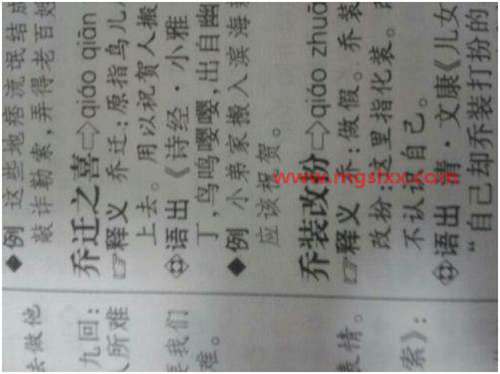 ◆例 这些地痞流氓结成
敲诈勒索,弄得老百姓
乔迁之喜⇨qiáo qiān
☞释义 乔迁:原指鸟儿
上去。用以祝贺人搬
语出 《诗经·小雅
丁,鸟鸣嘤嘤,出自幽
◆例 小弟家搬入滨海
应该祝贺。
乔装改扮⇨qiáo zhuā
☞释义 乔:做假。乔装
改扮:这里指化装。
不认 自己。
语出 清·文康《儿女
“自己却乔装打扮的
去做他
九回:
人所难
我们
难。
表情。
索》:
www.mgsfxx.com